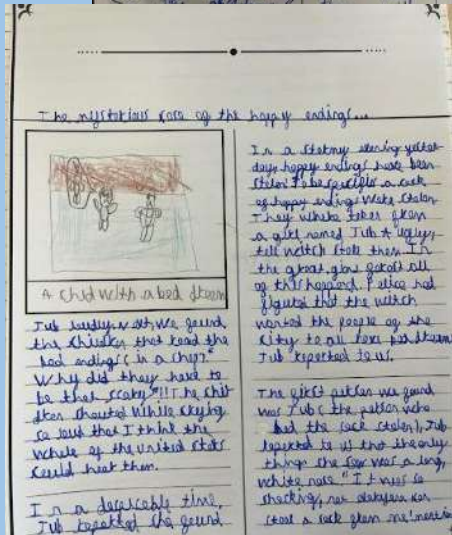 The mysterious case of the happy endings...
A child with a bad dream
Jub loudly. "we found
the children that read the
bad endings in a shop."
Why did they have to
be that scary"!! The chil
dren shouted while crying
so loud that I think the
whole of the united stats
could hear them.
In a time,
Jub reported she found
In a stormy evening yester
day, happy endings have been
stolen. To be specific a sack
of happy endings were stolen.
They where taken from
a girl named Jub. A ugly,
tell witch stole them. In
the great, forest all
of this happend. Police had
figured that the witch
wanted the people of the
city to all have bad dreams
Jub reported to us.
The first person we found
was Jub (the person who
had the sack stolen), Jub
reported to us that the only
thing she saw was a long,
white nose "It was so
shocking,
steal a sack from me"